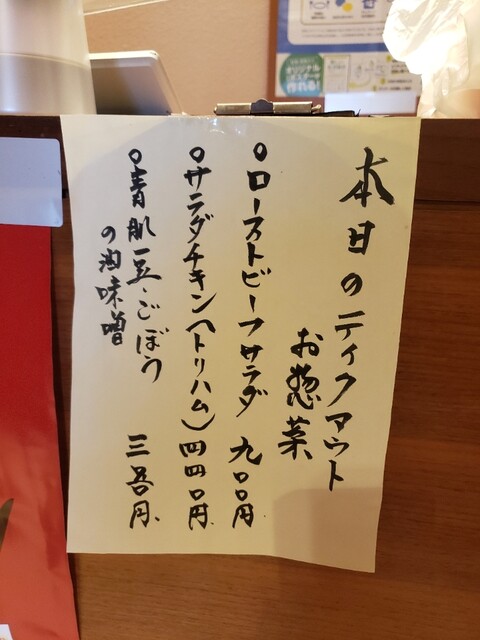 本日のテイクアウト
お惣菜
○ローストビーフサラダ 九〇〇円
○サラダチキン(トリハム)四四〇円
○青肌豆・ごぼう
の油味噌 三五〇円
オリジナル
作れる!